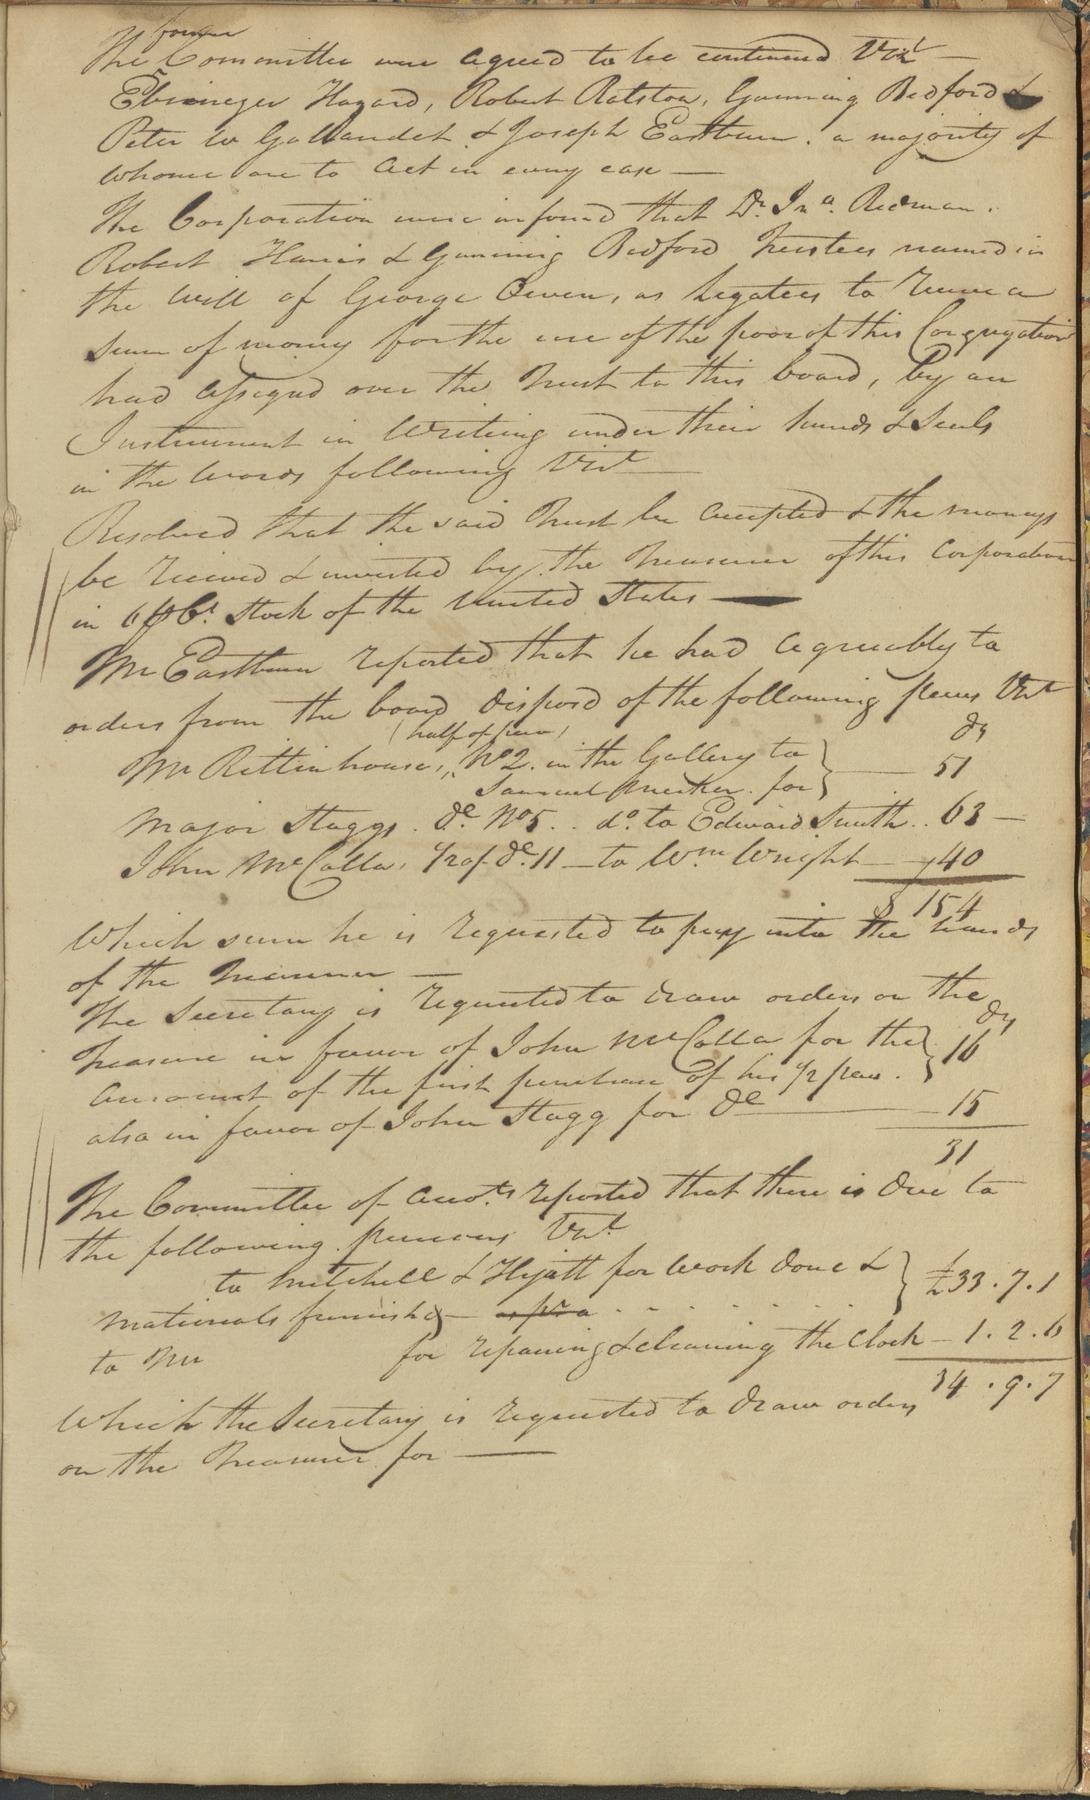 former
The Committee were agreed to be continued Vizt —
Ebineger Hazard, Robert Ralston, Gunning Bedford &
Peter W Gallaudet & Joseph Eastburn. a majority of
whome are to act in every case —
The Corporation were infomd that Dr. Jna. Redman.
Robert Harris & Gunning Bedford Trustees named in
the will of George Owen, as Legatees to receive a
sum of money for the use of the poor of this Congregation
had assigned over the Trust to this board, by an
Instrument in Writing under their hands & Seals
in the words following Vizt
Resolved that the said Trust be accepted & the moneys
be received & invested by the Treasurer of this Corporation
in 6 pCt. Stock of the United States —
Mr Eastburn reported that he had agreeably to
orders from the board disposd of the following pews Vizt
(half of pew) Ds
Mr Rittinhouse, No 2. in the Gallery to } — 51
Samuel for
Major Staggs. do. No 5.. do. to Edward Smith.. 63 —
John McCalla, 1/2 of do. 11 — to Wm Wright — 40
$ 154
Which sum he is requested to pay into the hands
of the Treasurer —
The Secretary is requested to draw orders on the
Ds
Treasurer in favor of John McCalla for the } 16
amount of the first purchase of his 1/2 pew.
also in favor of John Stagg for do — 15
31
The Committee of Accots reported that there is due to
the following persons Vizt
to Mitchell & Hyatt for work done & } £33.7.1
materials furnishd —
to Mr for repairing & cleaning the Clock — 1.2.6
34.9.7
Which the Secretary is requested to draw orders
on the Treasurer for —